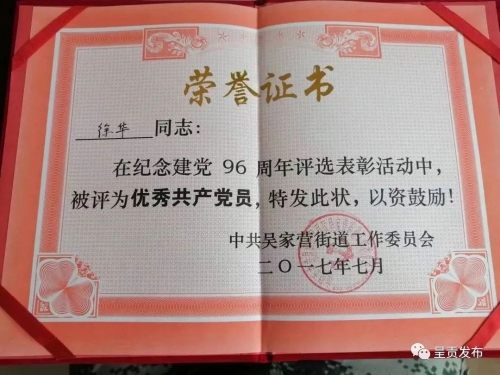 荣誉证书
徐华 同志：
在纪念建党 96 周年评选表彰活动中，
被评为优秀共产党员，特发此状，以资鼓励！
中共吴家营街道工作委员会
二〇一七年七月
呈贡发布